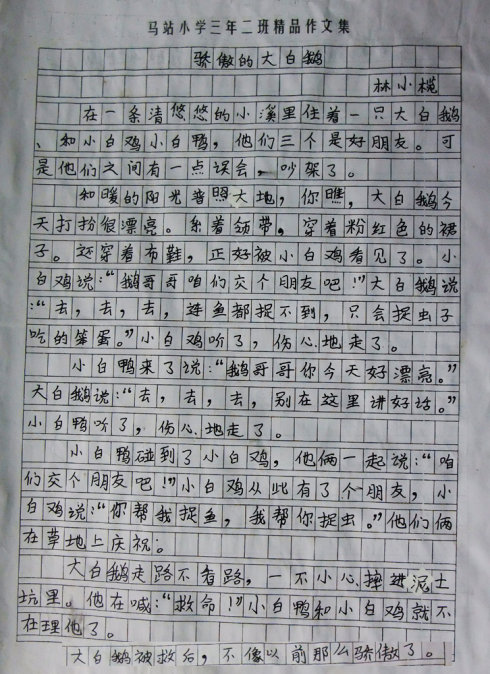 马站小学三年二班精品作文集
骄傲的大白鹅
林小榄
在一条清悠悠的小溪里住着一只大白鹅
、和小白鸡小白鸭，他们三个是好朋友。可
是他们之间有一点误会，吵架了。
和暖的阳光普照大地，你瞧，大白鹅今
天打扮很漂亮。系着领带，穿着粉红色的裙
子。还穿着布鞋，正好被小白鸡看见了。小
白鸡说：“鹅哥哥咱们交个朋友吧！”大白鹅说
：“去，去，去，连鱼都捉不到，只会捉虫子
吃的笨蛋。”小白鸡听了，伤心地走了。
小白鸭来了说：“鹅哥哥你今天好漂亮。”
大白鹅说：“去，去，去，别在这里讲好话。”
小白鸭听了，伤心地走了。
小白鸭碰到了小白鸡，他俩一起说：“咱
们交个朋友吧！”小白鸡从此有了个朋友，小
白鸡说：“你帮我捉鱼，我帮你捉虫。”他们俩
在草地上庆祝。
大白鹅走路不看路，一不小心摔进泥土
坑里。他在喊：“救命！”小白鸭和小白鸡就不
在理他了。
大白鹅被救后，不像以前那么骄傲了。